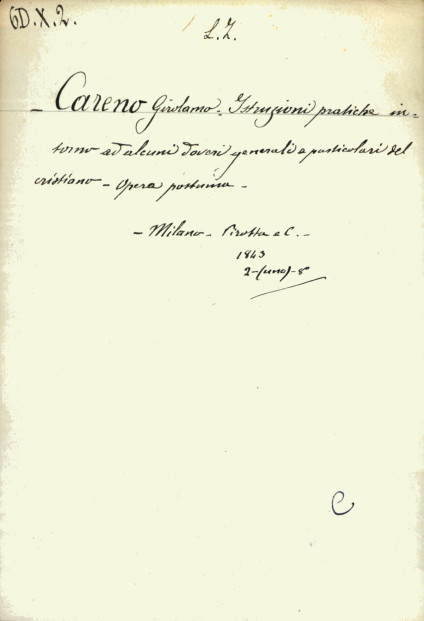 6D.X.2.
L.Z.
- Careno Girolamo. Istruzioni pratiche in=
torno ad alcuni doveri generali e particolari del
cristiano - Opera postuma -
- Milano - Pirotta e C. -
1843
2-(uno)-8°
C